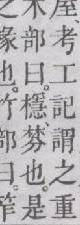 厔考工記謂之重
木部曰檼棼也是
椽也竹部曰筰